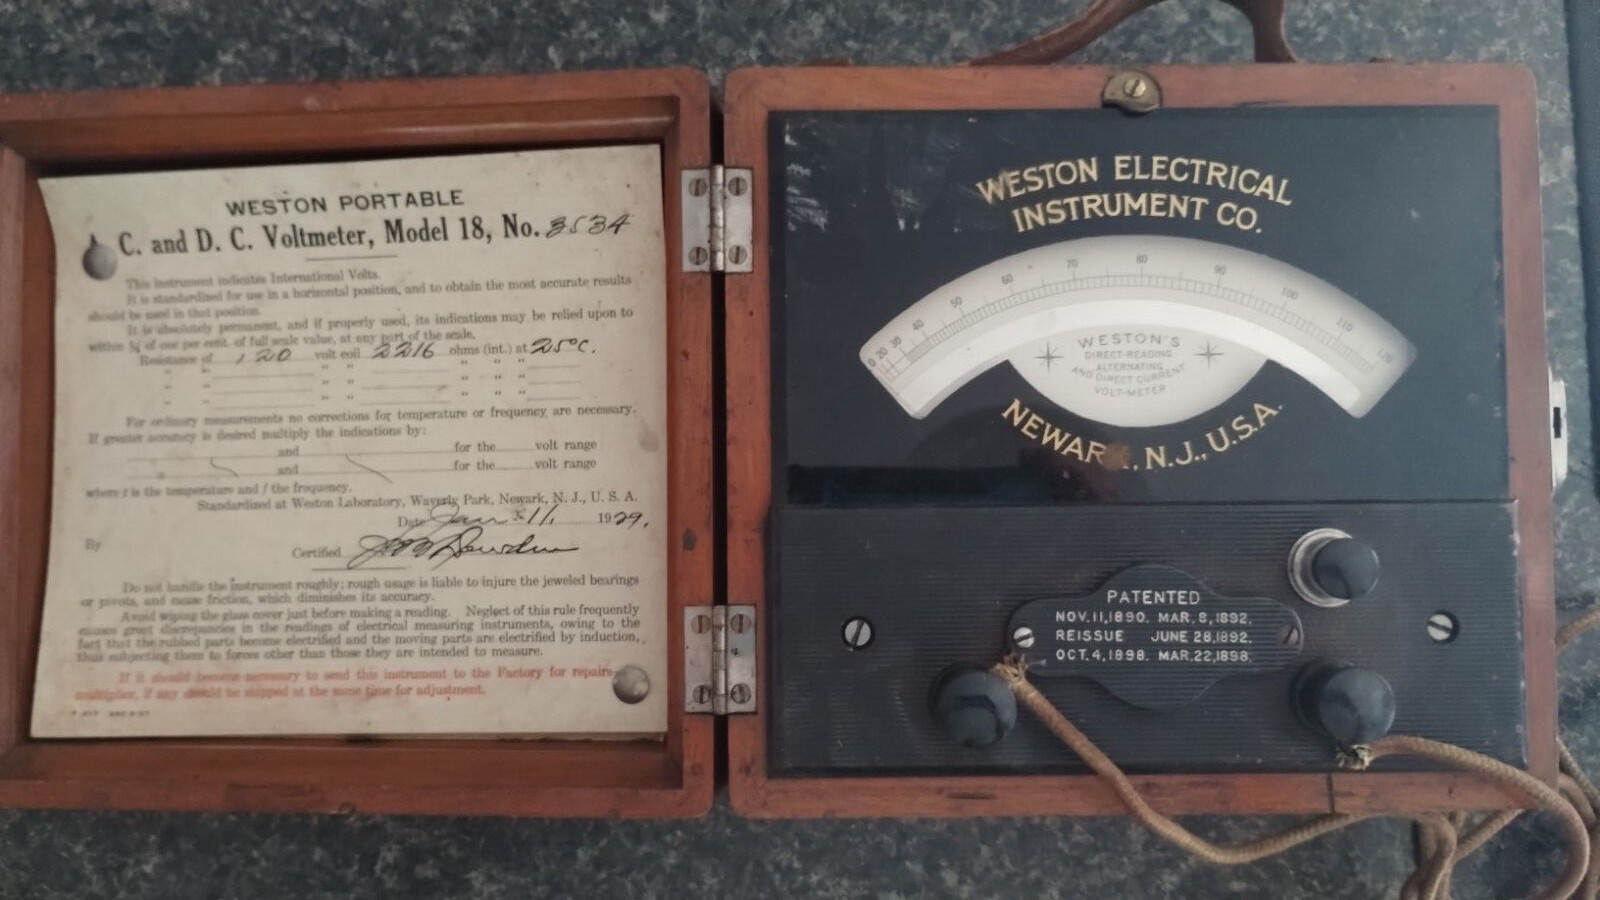 WESTON PORTABLE
C. and D. C. Voltmeter, Model 18, No. 3534
This instrument indicates International Volts.
It is standardized for use in a horizontal position, and to obtain the most accurate results
should be used in that position.
It is absolutely permanent, and if properly used, its indications may be relied upon to
within ¾ of one per cent. of full scale value, at any part of the scale.
Resistance of 120 volt coil 2216 ohms (int.) at 25°C.
" " " " " " "
" " " " " " "
" " " " " " "
For ordinary measurements no corrections for temperature or frequency are necessary.
If greater accuracy is desired multiply the indications by:
and for the volt range
and for the volt range
where t is the temperature and f the frequency.
Standardized at Weston Laboratory, Waverly Park, Newark, N. J., U. S. A.
Date Jan 11, 1929.
By
Certified
Do not handle the instrument roughly; rough usage is liable to injure the jeweled bearings
or pivots, and cause friction, which diminishes its accuracy.
Avoid wiping the glass cover just before making a reading. Neglect of this rule frequently
causes great discrepancies in the readings of electrical measuring instruments, owing to the
fact that the rubbed parts become electrified and the moving parts are electrified by induction,
thus subjecting them to forces other than those they are intended to measure.
If it should become necessary to send this instrument to the Factory for repairs
multiplier, if any should be shipped at the same time for adjustment.
WESTON ELECTRICAL
INSTRUMENT CO.
0 20 30 40 50 60 70 80 90 100 110 120
WESTON'S
DIRECT-READING
ALTERNATING
AND DIRECT CURRENT
VOLT-METER
NEWARK, N.J., U.S.A.
PATENTED
NOV. 11, 1890. MAR. 8, 1892.
REISSUE JUNE 28, 1892.
OCT. 4, 1898. MAR. 22, 1898.